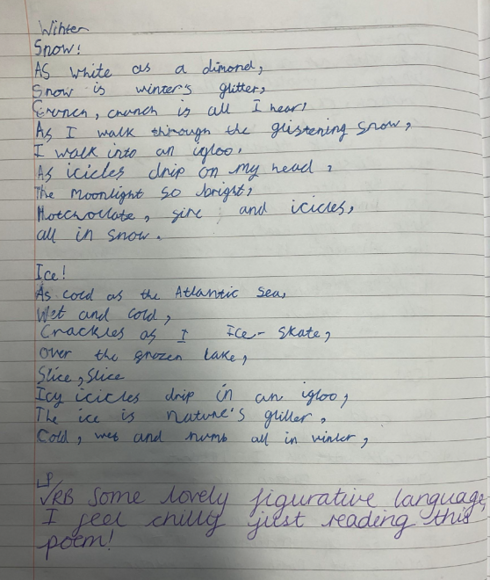 Winter
Snow!
As white as a dimond,
Snow is winter's glitter,
Crunch, crunch is all I hear,
As I walk through the glistening snow,
I walk into an igloo.
As icicles drip on my head,
The Moonlight so bright,
Hotchocolate, and icicles,
all in snow.

Ice!
As cold as the Atlantic sea,
Wet and cold,
Crackles as I Ice-skate,
over the grozen lake,
Slice, Slice
Icy icicles drip in an igloo,
The ice is nature's glitter,
Cold, wet and numb all in winter,

RB Some lovely figurative language,
I feel chilly just reading this
poem!